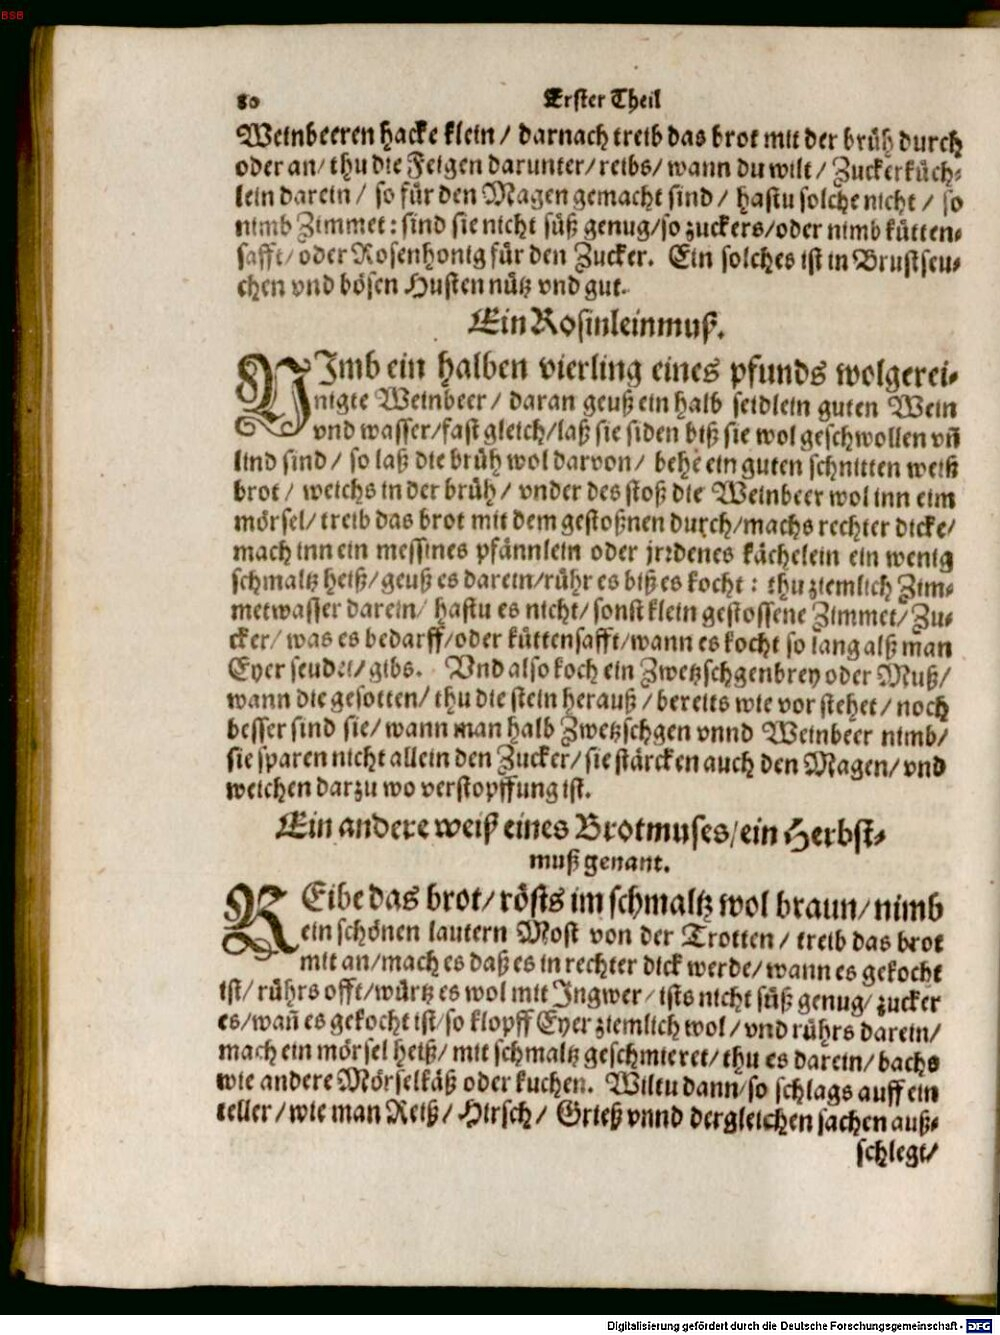 BSB
80 Erster Theil
Weinbeeren hacke klein / darnach treib das brot mit der brüh durch
oder an / thu die Feigen darunter / reibs / wann du wilt / Zuckerküch⸗
lein darein / so für den Magen gemacht sind / hastu solche nicht / so
nimb Zimmet: sind sie nicht süß genug / so zuckers / oder nimb kütten⸗
safft / oder Rosenhonig für den Zucker. Ein solches ist in Brustseu⸗
chen vnd bösen Husten nütz vnd gut.
Ein Rosinleinmuß.
NImb ein halben vierling eines pfunds wolgerei⸗
nigte Weinbeer / daran geuß ein halb seidlein guten Wein
vnd wasser / fast gleich / laß sie siden biß sie wol geschwollen vñ
lind sind / so laß die brüh wol darvon / behe ein guten schnitten weiß
brot / weichs in der brüh / vnder des stoß die Weinbeer wol inn eim
mörsel / treib das brot mit dem gestoßnen durch / machs rechter dicke /
mach inn ein messines pfännlein oder jrrdenes kächelein ein wenig
schmaltz heiß / geuß es darein / rühr es biß es kocht: thu ziemlich Zim⸗
metwasser darein / hastu es nicht / sonst klein gestossene Zimmet / Zu⸗
cker / was es bedarff / oder küttensafft / wann es kocht so lang alß man
Eyer seudet / gibs. Vnd also koch ein Zwetzschgenbrey oder Muß /
wann die gesotten / thu die stein herauß / bereits wie vor stehet / noch
besser sind sie / wann man halb Zwetzschgen vnnd Weinbeer nimb /
sie sparen nicht allein den Zucker / sie stärcken auch den Magen / vnd
weichen darzu wo verstopffung ist.
Ein andere weiß eines Brotmuses / ein Herbst⸗
muß genant.
REibe das brot / rösts im schmaltz wol braun / nimb
ein schönen lautern Most von der Trotten / treib das brot
mit an / mach es daß es in rechter dick werde / wann es gekocht
ist / rührs offt / würtz es wol mit Ingwer / ists nicht süß genug / zucker
es / wañ es gekocht ist / so klopff Eyer ziemlich wol / vnd rührs darein /
mach ein mörsel heiß / mit schmaltz geschmieret / thu es darein / bachs
wie andere Mörselkäß oder kuchen. Wiltu dann / so schlags auff ein
teller / wie man Reiß / Hirsch / Grieß vnnd dergleichen sachen auß⸗
schlegt /
Digitalisierung gefördert durch die Deutsche Forschungsgemeinschaft - DFG